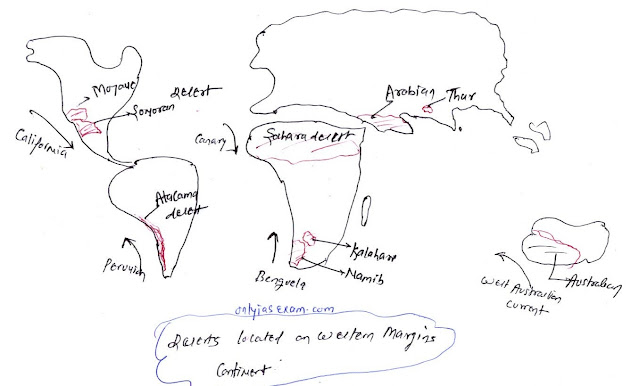 Mojave
Sonoran
Desert
California
Atacama
desert
Peruvian
Canary
Sahara desert
Arabian
Thar
Benguela
Kalahari
Namib
West Australian
current
Australian
onlyiasexam.com
Deserts located on Western Margins
Continent